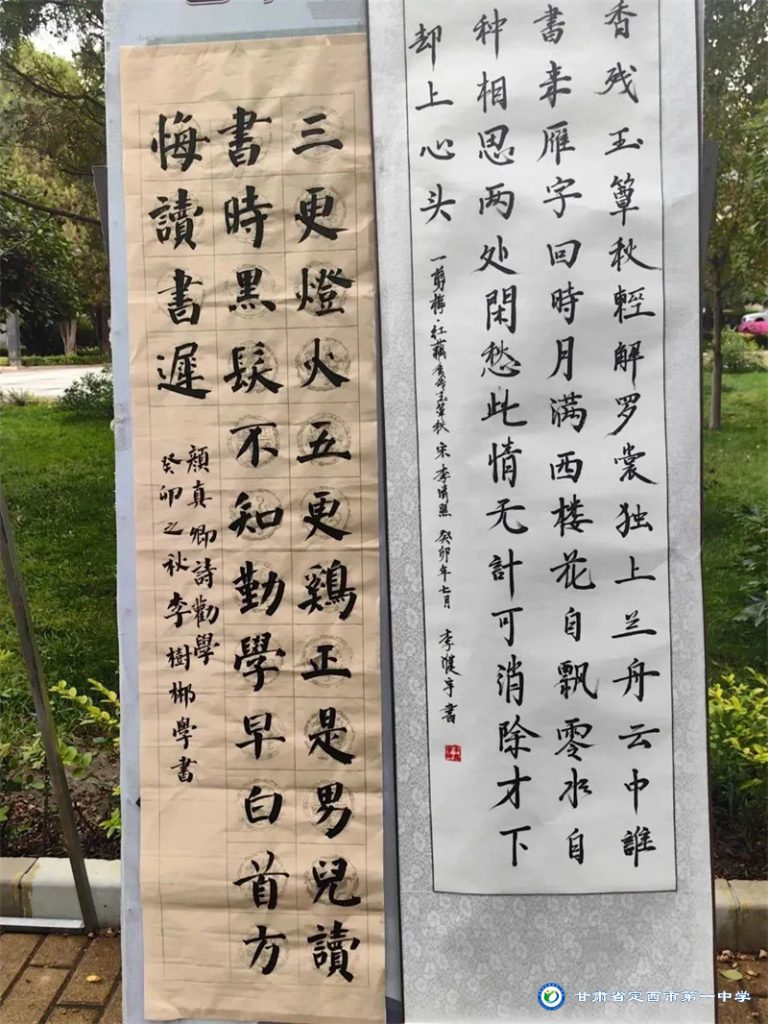 香残玉簟秋輕解罗裳独上兰舟云中誰
書来雁字回時月满西楼花自飘零水自
种相思两处閑愁此情无計可消除才下
却上心头
一剪梅·红藕香残玉簟秋 宋 李清照 癸卯年七月 李 宇書
三更燈火五更鷄正是男兒讀
書時黑髮不知勤學早白首方
悔讀書遲
顔真卿詩勸學
癸卯之秋李樹郴學書
甘肃省定西市第一中学